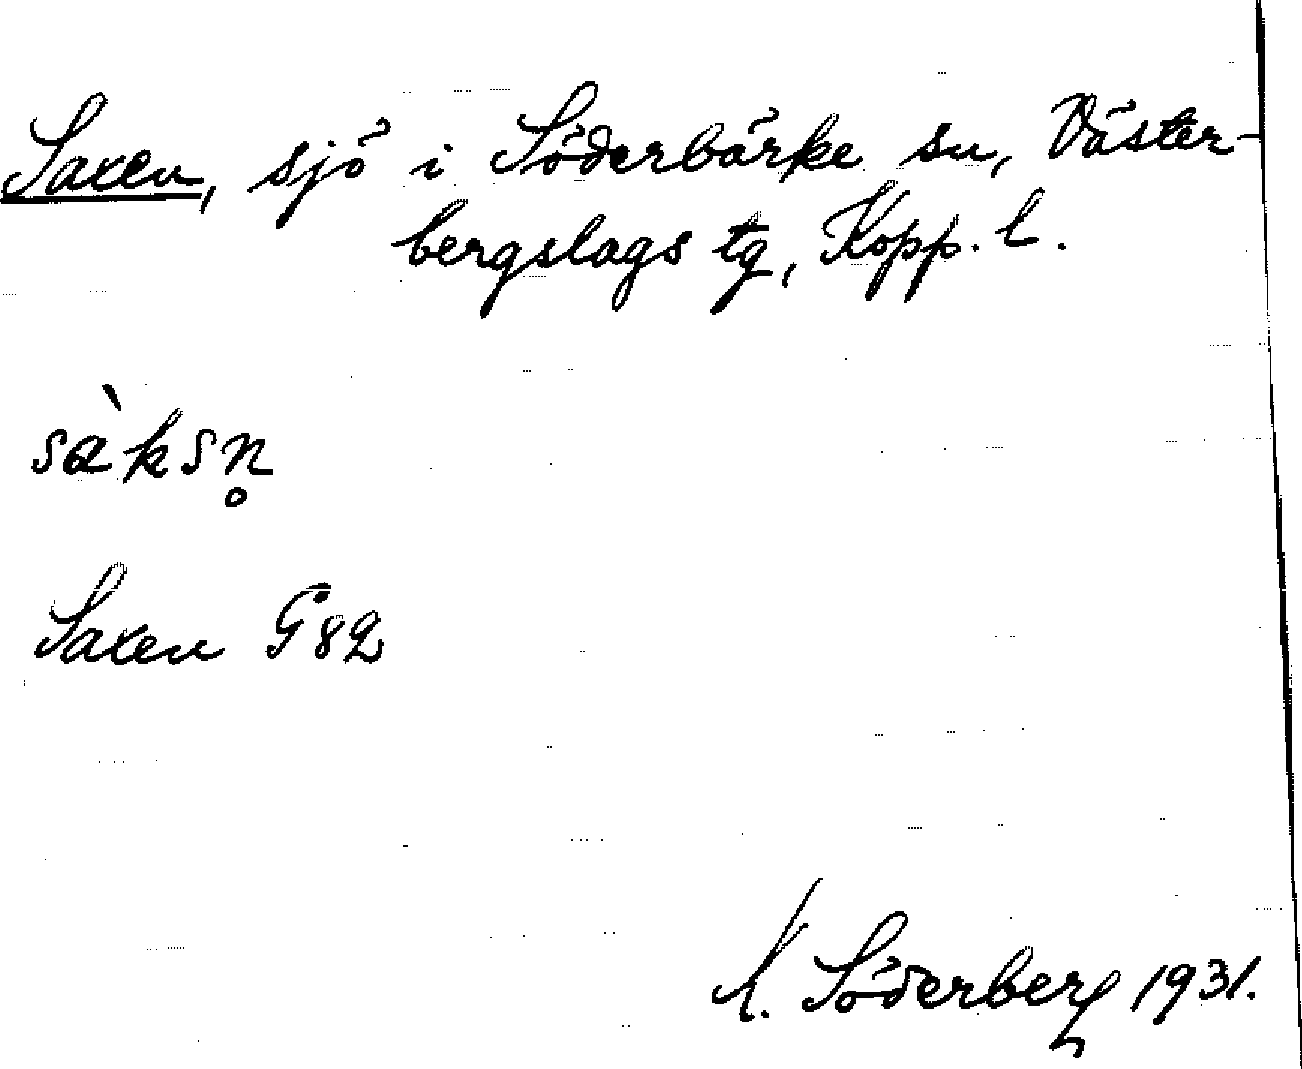 Saxen, sjö i Söderbärke sn, Väster-
bergslags tg, Kopp. l.
sàksn̥
Saxen G82
A. Söderberg 1931.